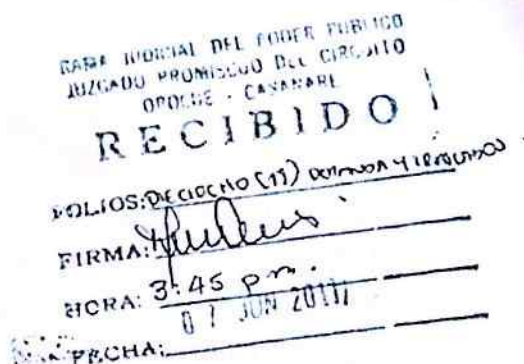 RAMA JUDICIAL DEL PODER PUBLICO
JUZGADO PROMISCUO DEL CIRCUITO
OROCUE - CASANARE
RECIBIDO
FOLIOS: DIECIOCHO DEMANDA Y
FIRMA:
HORA: 3:45 pm.
07 JUN
FECHA: